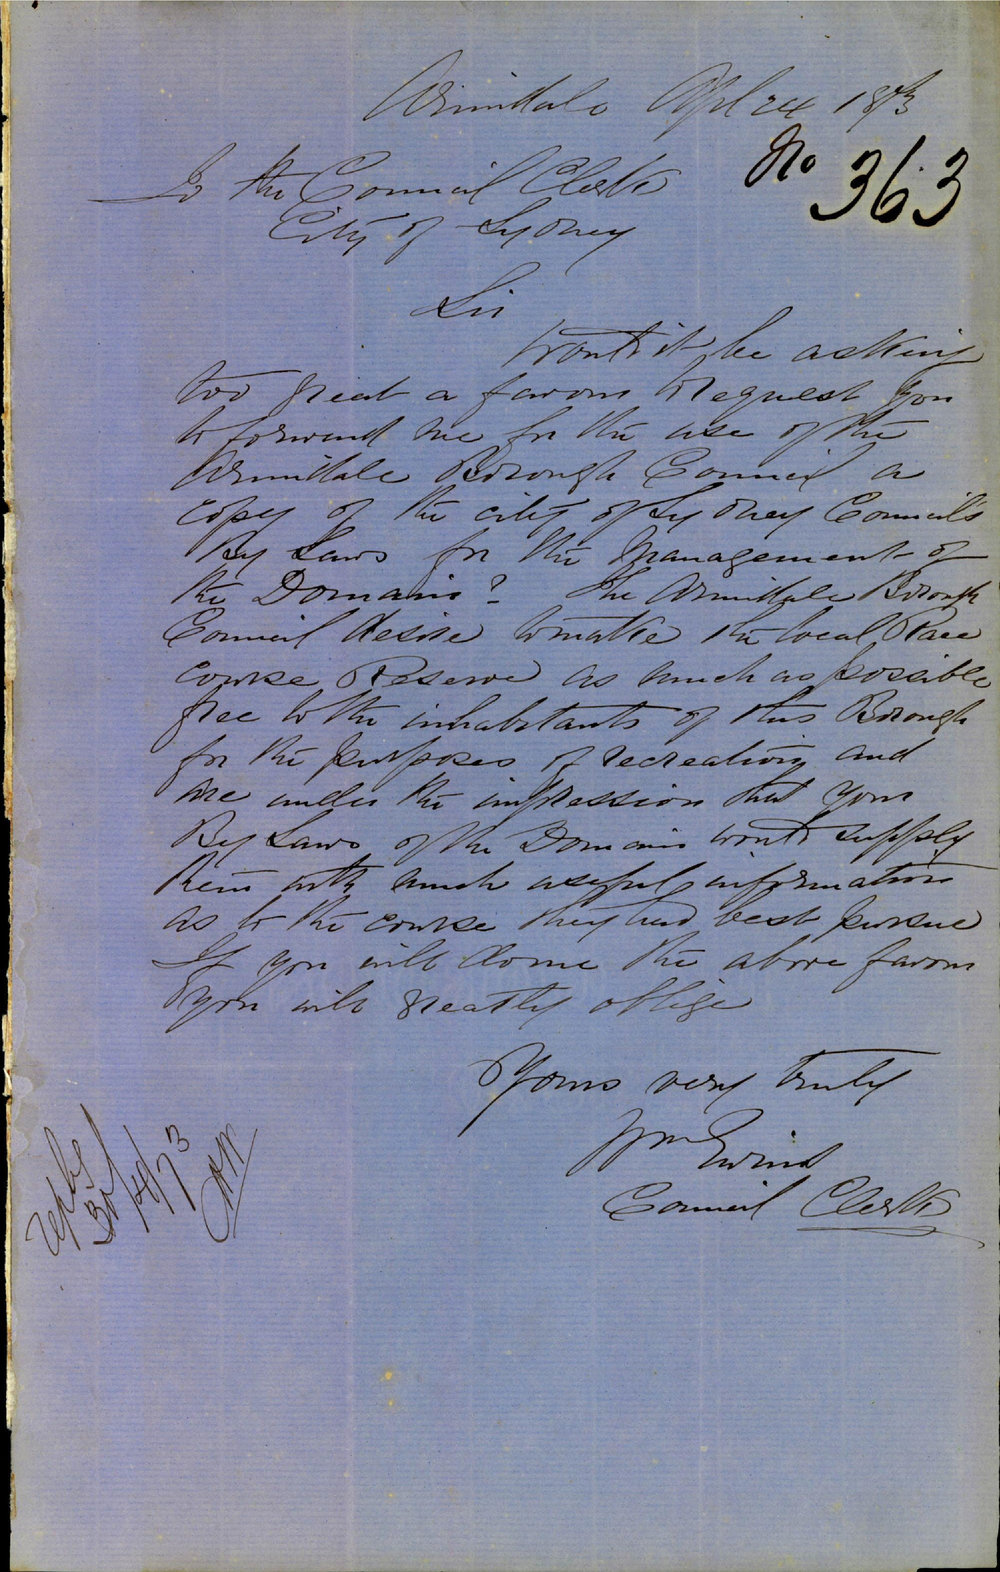 Armidale Apl 24 1873
No 363
To the Council Clerk
City of Sydney
Sir
Would it be asking
too great a favour to request you
to forward me for the use of the
Armidale Borough Council a
copy of the city of Sydney Council's
By Laws for the Management of
the Domain? - The Armidale Borough
Council desire to make the local Race
course Reserve as much as possible
free to the inhabitants of this Borough
for the purposes of recreation and
are under the impression that your
By Laws of the Domain would supply
them with much useful information
as to the course they had best pursue
If you will do me the above favour
you will greatly oblige
Yours very truly
Wm
Council Clerk
reply
30/4/73